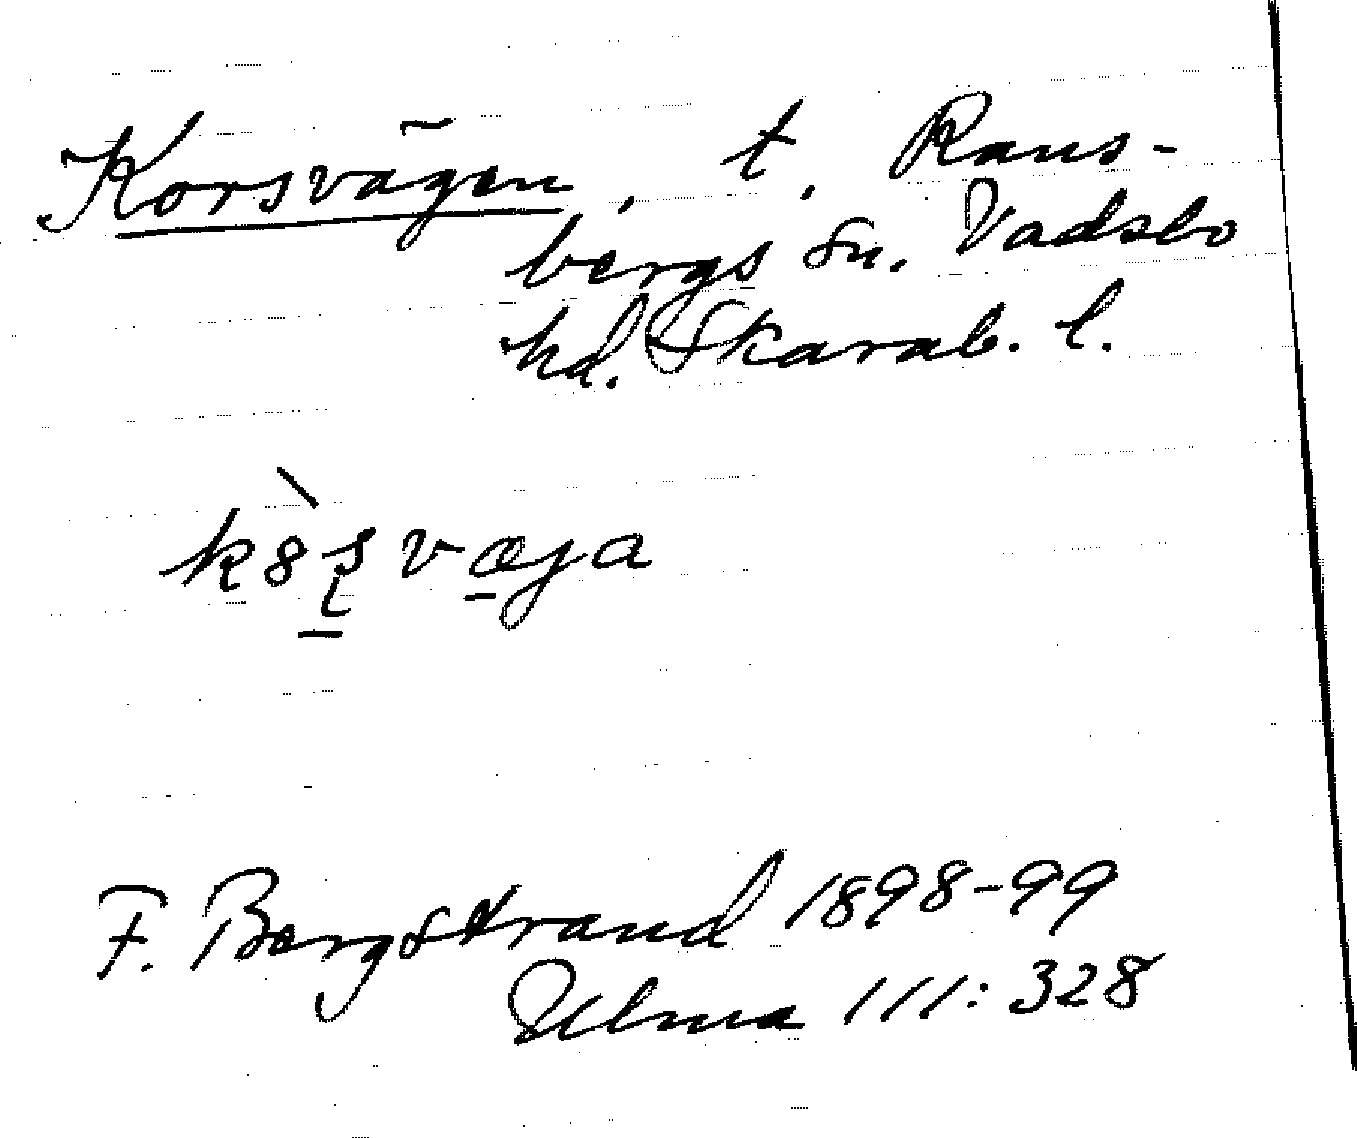 Korsvägen, t. Rans-
bergs sn. Vadsbo
hd. Skarab. l.
kòșvæja
F. Bergstrand 1898-99
Ulma 111:328